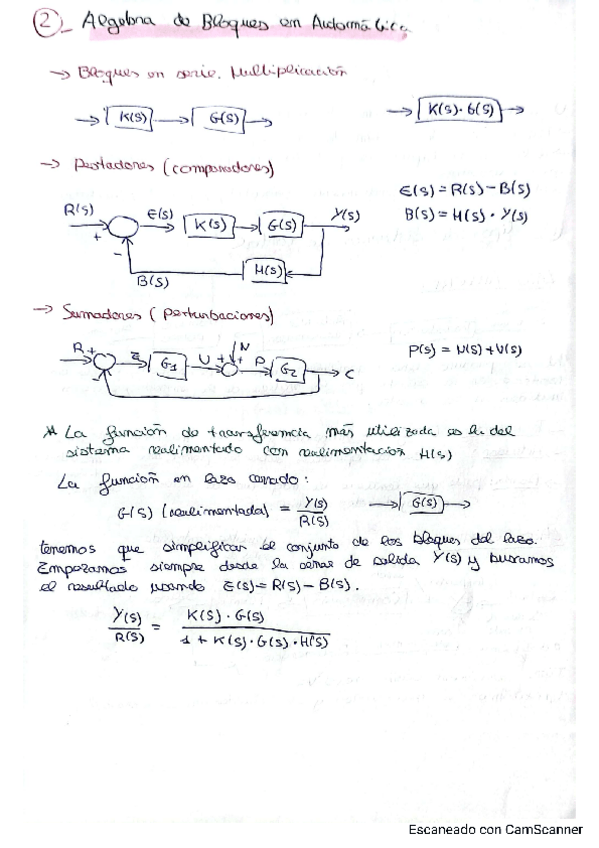 2 - Algebra de Bloques en Automática
→ Bloques en serie. Multiplicación
→ K(s) → G(s) → → K(s)·G(s) →
→ Restadores (comparadores)
R(s) + - E(s) K(s) G(s) Y(s) H(s) B(s)
E(s) = R(s) - B(s)
B(s) = H(s) · Y(s)
→ Sumadores (Perturbaciones)
R + - E G1 U + N + P G2 C
P(s) = N(s) + U(s)
* La función de transferencia más utilizada es la del
sistema realimentado con realimentación H(s)
La función en lazo cerrado:
G(s) (realimentada) = Y(s)/R(s) → G(s) →
tenemos que simplificar el conjunto de los bloques del lazo.
Empezamos siempre desde la señal de salida Y(s) y buscamos
el resultado usando E(s) = R(s) - B(s).
Y(s)/R(s) = K(s) · G(s) / 1 + K(s) · G(s) · H(s)
Escaneado con CamScanner